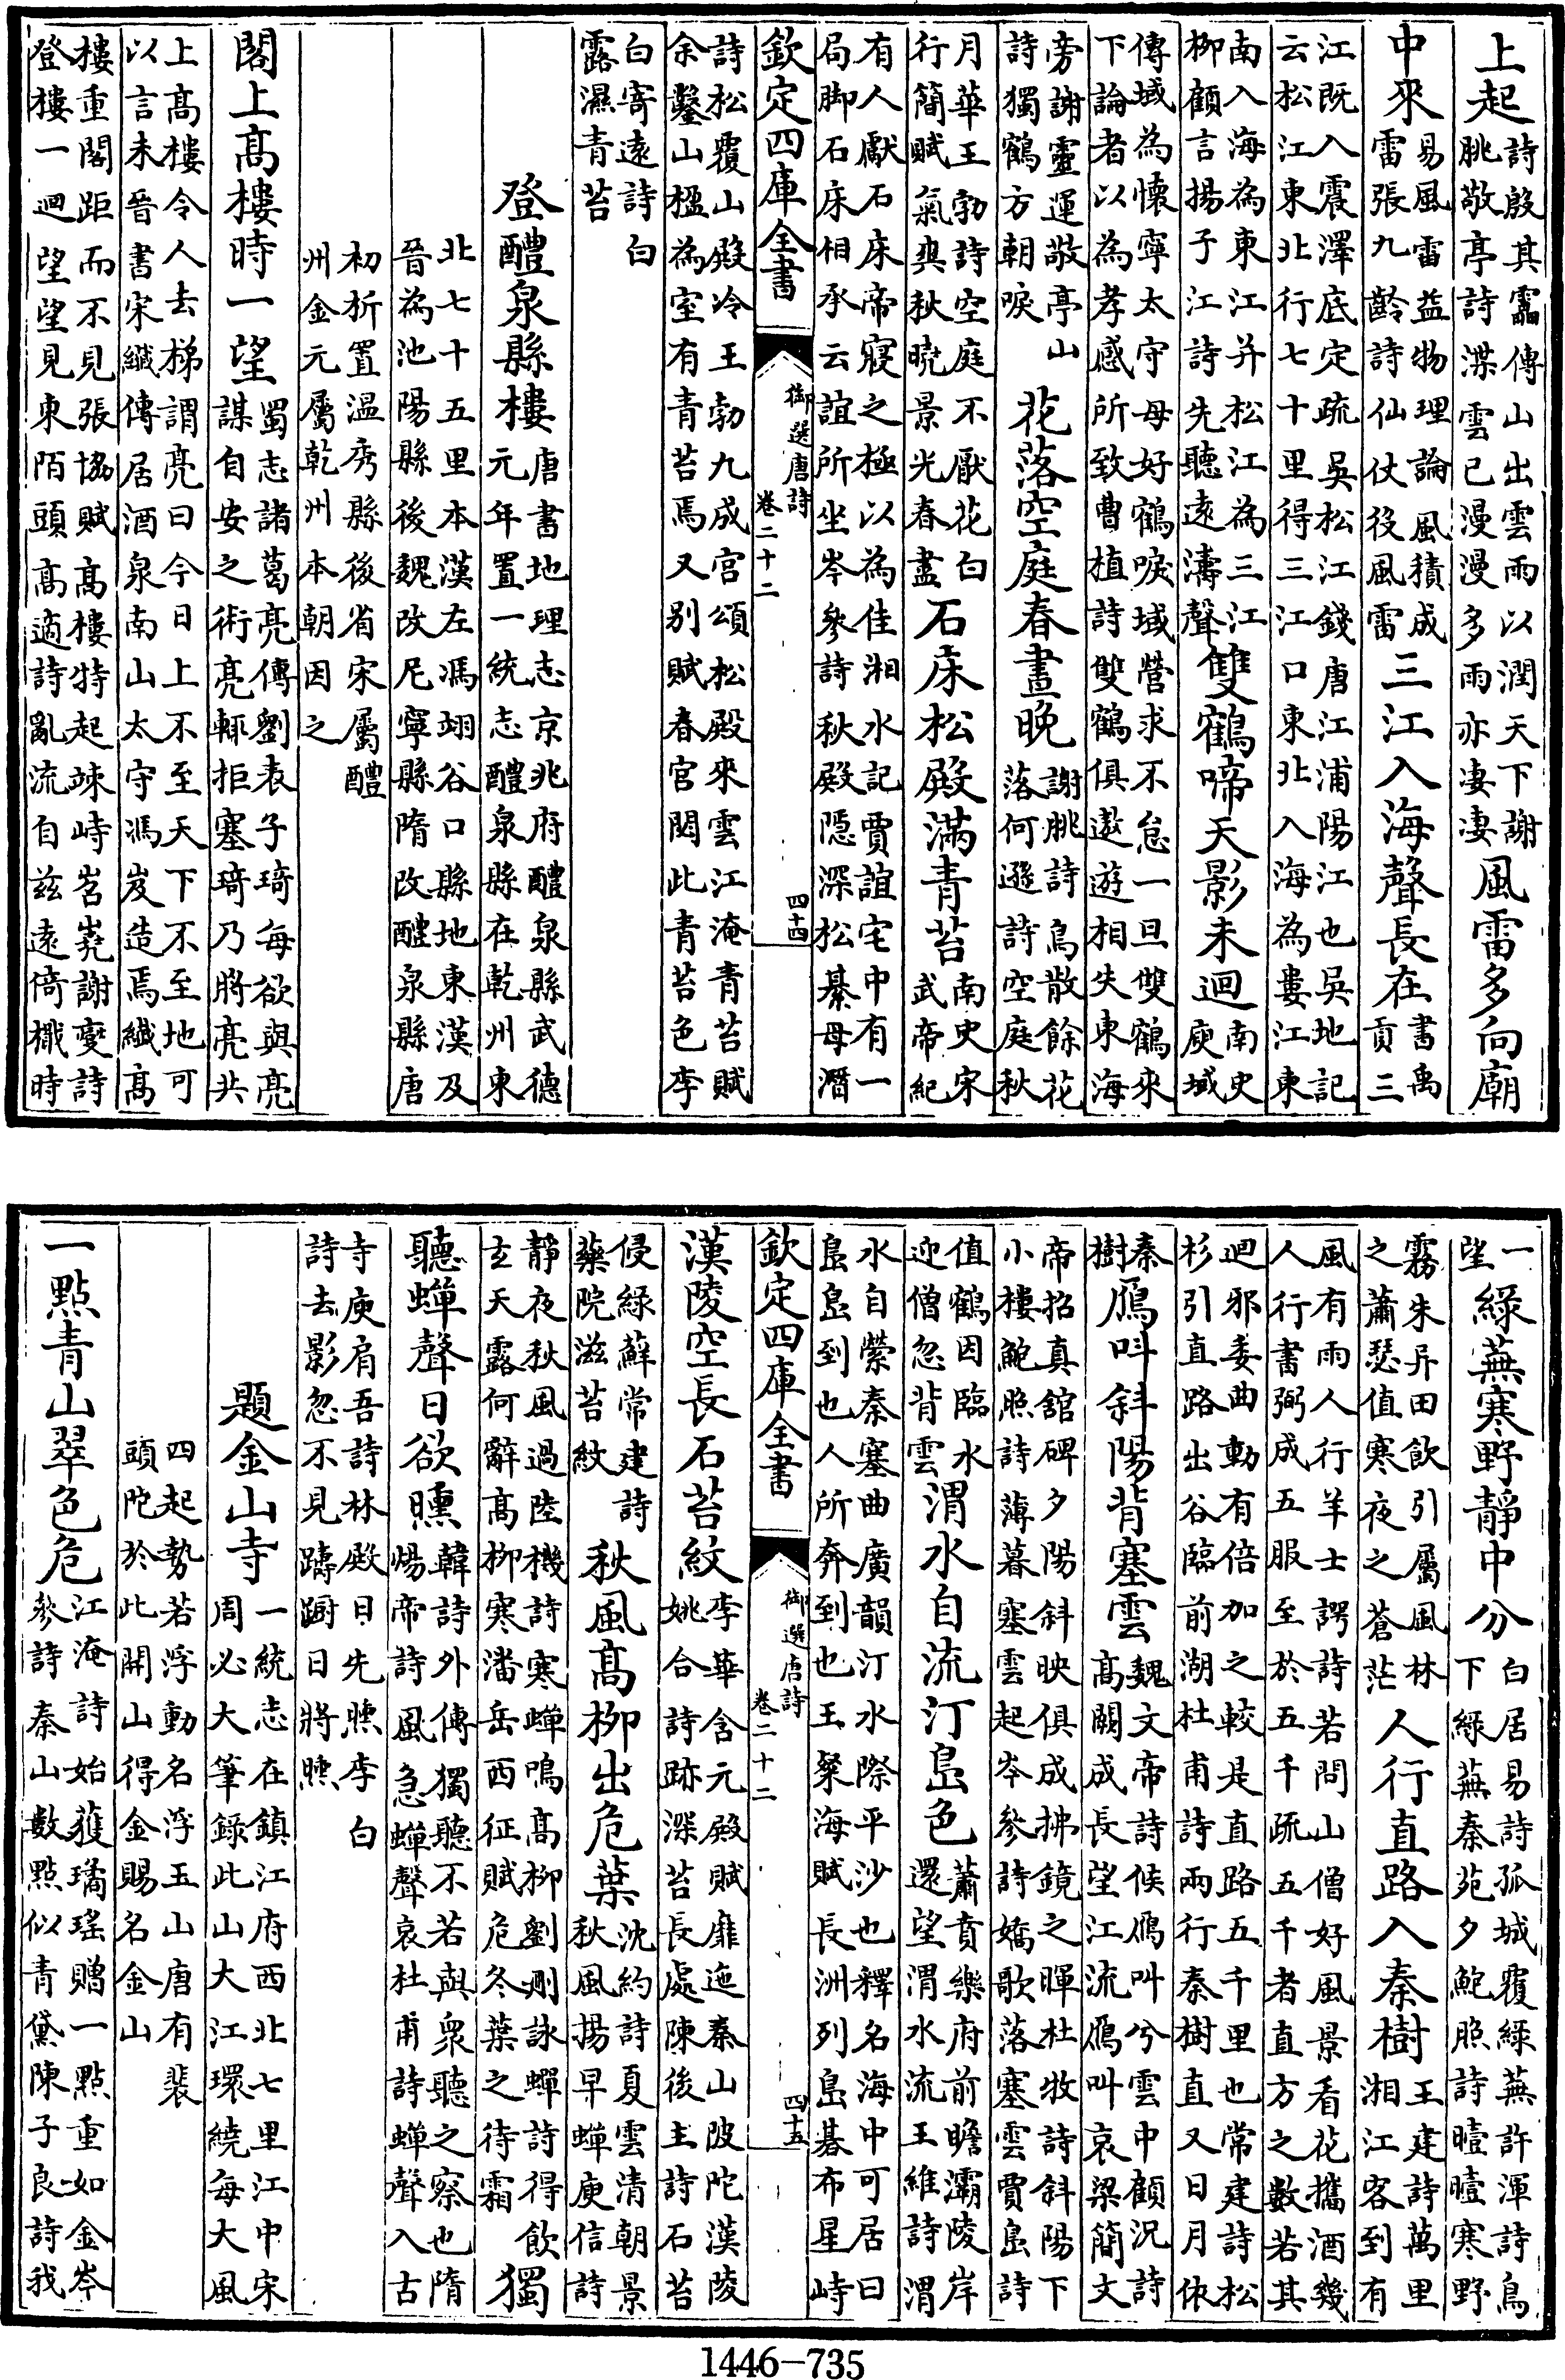 上起詩殷其靁傳山出雲雨以潤天下謝
朓敬亭詩渫雲已漫漫多雨亦凄凄風雷多向廟
中來易風雷益物理論風積成
雷張九齡詩仙仗役風雷三江入海聲長在書禹
貢三
江既入震澤底定疏吳松江錢唐江浦陽江也吳地記
云松江東北行七十里得三江口東北入海為婁江東
南入海為東江并松江為三江
柳顧言揚子江詩先聽遠濤聲雙鶴啼天影未迴南史
庾域
傳域為懷寧太守母好鶴唳域營求不怠一旦雙鶴來
下論者以為孝感所致曹植詩雙鶴俱遨遊相失東海
旁謝靈運敬亭山
詩獨鶴方朝唳花落空庭春晝晚謝朓詩鳥散餘花
落何遜詩空庭秋
月華王勃詩空庭不厭花白
行簡賦氣與秋曉景光春盡石床松殿滿青苔南史宋
武帝紀
有人獻石床帝寢之極以為佳湘水記賈誼宅中有一
局脚石床相承云誼所坐岑參詩秋殿隱深松綦母潛
欽定四庫全書
御選唐詩
卷二十二
四十四
詩松覆山殿冷王勃九成宮頌松殿來雲江淹青苔賦
余鑿山楹為室有青苔焉又别賦春宮閟此青苔色李
白寄遠詩白
露濕青苔
登醴泉縣樓唐書地理志京兆府醴泉縣武德
元年置一統志醴泉縣在乾州東
北七十五里本漢左馮翊谷口縣地東漢及
晉為池陽縣後魏改尼寧縣隋改醴泉縣唐
初析置温秀縣後省宋屬醴
州金元屬乾州本朝因之
閣上髙樓時一望蜀志諸葛亮傳劉表子琦每欲與亮
謀自安之術亮輒拒塞琦乃將亮共
上髙樓令人去梯謂亮曰今日上不至天下不至地可
以言未晉書宋纎傳居酒泉南山太守馮岌造焉纎髙
樓重閣距而不見張協賦髙樓特起竦峙岧嶤謝燮詩
登樓一迴望望見東陌頭髙適詩亂流自兹遠倚檝時
一
望綠蕪寒野靜中分白居易詩孤城覆綠蕪許渾詩鳥
下綠蕪秦苑夕鮑照詩曀曀寒野
霧朱异田飲引屬風林
之蕭瑟值寒夜之蒼茫人行直路入秦樹王建詩萬里
湘江客到有
風有雨人行羊士諤詩若問山僧好風景看花攜酒幾
人行書弼成五服至於五千疏五千者直方之數若其
迴邪委曲動有倍加之較是直路五千里也常建詩松
杉引直路出谷臨前湖杜甫詩兩行秦樹直又日月休
秦
樹鴈呌斜陽背塞雲魏文帝詩候鴈叫兮雲中顧況詩
髙闕成長望江流鴈叫哀梁簡文
帝招真館碑夕陽斜映俱成拂鏡之暉杜牧詩斜陽下
小樓鮑照詩薄暮塞雲起岑參詩嬌歌落塞雲賈島詩
值鶴因臨水
迎僧忽背雲渭水自流汀島色蕭賁樂府前瞻灞陵岸
還望渭水流王維詩渭
水自縈秦塞曲廣韻汀水際平沙也釋名海中可居曰
島島到也人所奔到也王粲海賦長洲列島碁布星峙
欽定四庫全書
御選唐詩
卷二十二
四十五
漢陵空長石苔紋李華含元殿賦靡迤秦山陂陀漢陵
姚合詩跡深苔長處陳後主詩石苔
侵綠蘚常建詩
藥院滋苔紋秋風髙柳出危葉沈約詩夏雲清朝景
秋風揚早蟬庾信詩
靜夜秋風過陸機詩寒蟬鳴髙柳劉刪詠蟬詩得飲
玄天露何辭髙柳寒潘岳西征賦危冬葉之待霜獨
聽蟬聲日欲曛韓詩外傳獨聽不若與衆聽之察也隋
煬帝詩風急蟬聲哀杜甫詩蟬聲入古
寺庾肩吾詩林殿日先曛李白
詩去影忽不見躊躇日將曛
題金山寺一統志在鎮江府西北七里江中宋
周必大筆錄此山大江環繞每大風
四起勢若浮動名浮玉山唐有裴
頭陀於此開山得金賜名金山
一點青山翠色危江淹詩始獲璚瑤贈一點重如金岑
參詩秦山數點似青黛陳子良詩我
1446-735